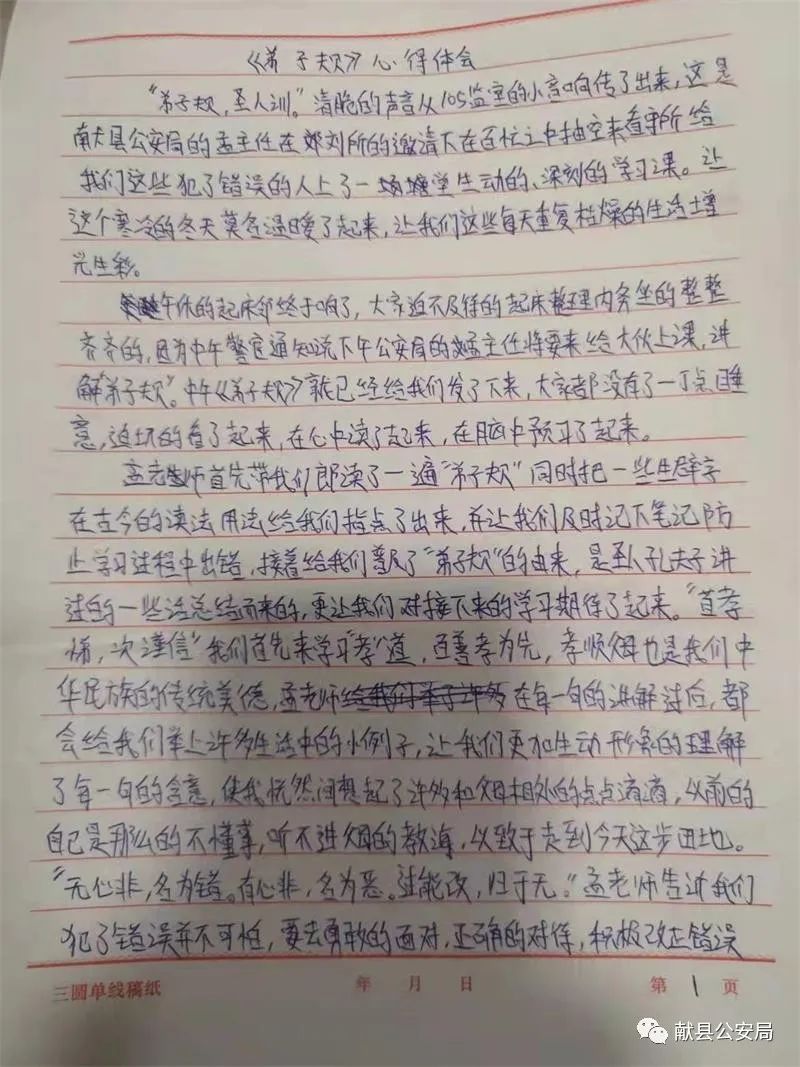 《弟子规》心得体会
“弟子规，圣人训。”清脆的声音从105监室的小音响传了出来，这是
献县公安局的孟主任在郊刘所的邀请下在百忙之中抽空来看守所给
我们这些犯了错误的人上了一场生动的、深刻的学习课。让
这个寒冷的冬天莫名温暖了起来，让我们这些每天重复枯燥的生活增
光生彩。
午休的起床邻终于响了，大家迫不及待的起床整理内务坐的整整
齐齐的，因为中午警官通知说下午公安局的孟主任将要来给大伙上课，讲
解“弟子规”。中午《弟子规》就已经给我们发了下来，大家都没有了一丁点睡
意，迫切的看了起来，在心中读了起来，在脑中预习了起来。
孟老师首先带我们郎读了一遍“弟子规”同时把一些生辟字
在古今的读法用法给我们指点了出来，并让我们及时记下笔记防
止学习过程中出错，接着给我们普及了“弟子规”的由来，是圣人孔夫子讲
过的一些话总结而来的，更让我们对接下来的学习期待了起来。“首孝
悌，次谨信”我们首先来学习“孝”道，百善孝为先，孝顺父母也是我们中
华民族的传统美德，孟老师给我们举了许多在每一句的讲解过后，都
会给我们举上许多生活中的小例子，让我们更加生动形象的理解
了每一句的含意，使我恍然间想起了许多和父母相处的点点滴滴，以前的
自己是那么的不懂事，听不进父母的教诲，以致于走到今天这步田地。
“无心非，名为错。有心非，名为恶。过能改，归于无。”孟老师告讲我们
犯了错误并不可怕，要去勇敢的面对，正确的对待，积极改正错误
三圆单线稿纸 年 月 日 第 1 页
献县公安局